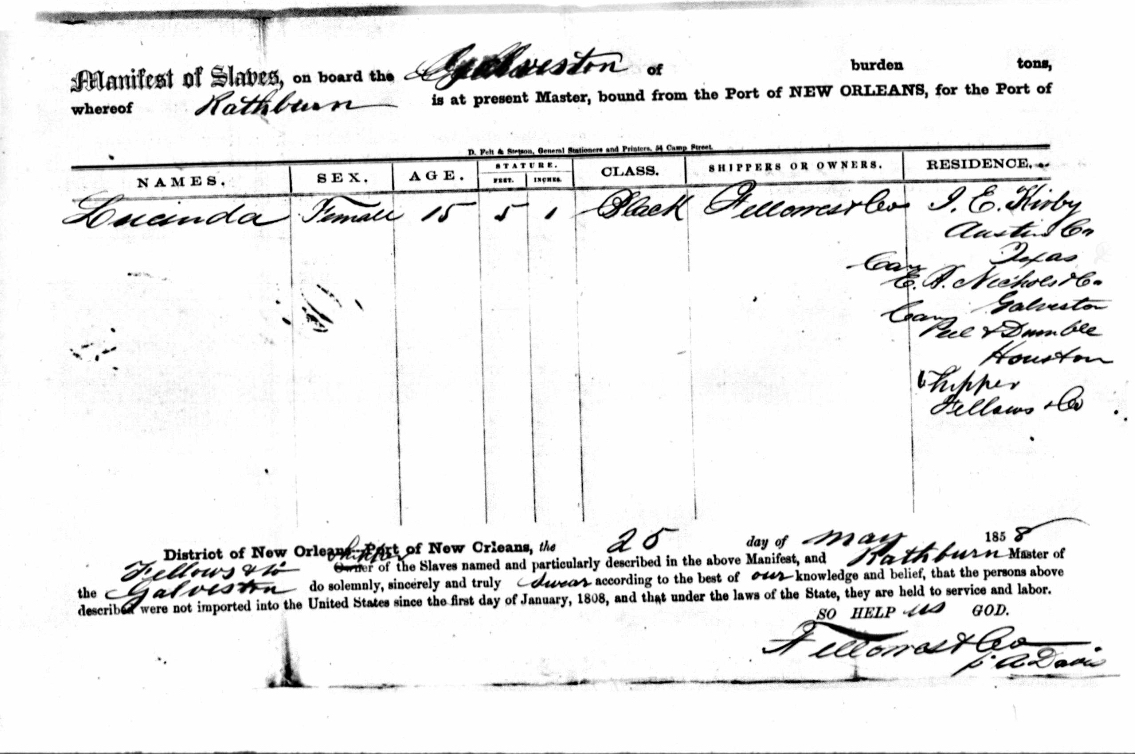 Manifest of Slaves, on board the Galveston of burden tons,
whereof Rathburn is at present Master, bound from the Port of NEW ORLEANS, for the Port of
D. Felt & Stetson, General Stationers and Printers, 24 Camp Street.
NAMES. SEX. AGE. STATURE. CLASS. SHIPPERS OR OWNERS. RESIDENCE.
FEET. INCHES.
Lucinda Female 15 5 1 Black Fellowes & Co I. E. Kirby
Austin Co
Texas
Care E. A. Nichols & Co
Galveston
Care Peel & Dumble
Houston
Shipper
Fellows & Co
District of New Orleans, Port of New Orleans, the 25 day of May 1858
Fellows & Co Shipper Owner of the Slaves named and particularly described in the above Manifest, and Rathburn Master of
the Galveston do solemnly, sincerely and truly Swear according to the best of our knowledge and belief, that the persons above
described were not imported into the United States since the first day of January, 1808, and that under the laws of the State, they are held to service and labor.
SO HELP us GOD.
Fellowes & Co
A Davis